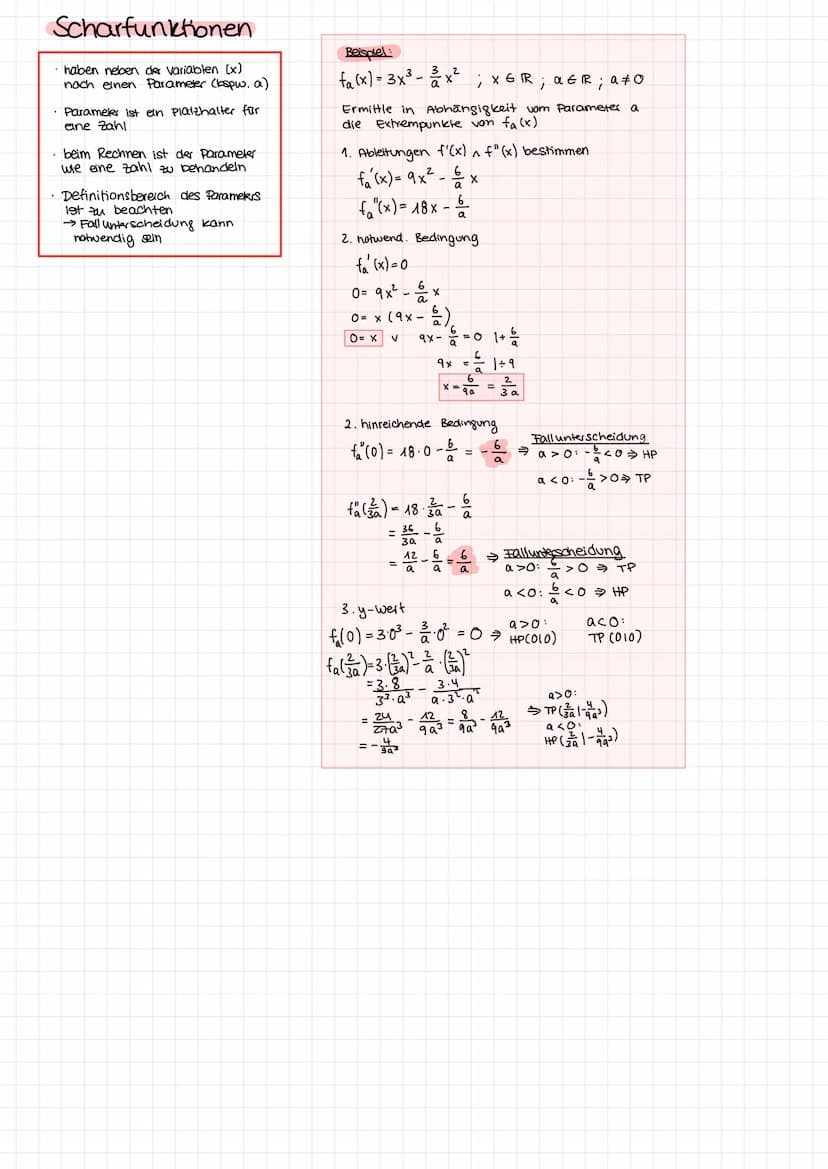 Scharfunktionen
· haben neben der Variablen (x)
noch einen Parameter (bspw. a)
· Parameter ist ein Platzhalter für
eine Zahl
· beim Rechnen ist der Parameter
wie eine Zahl zu behandeln
· Definitionsbereich des Parameters
ist zu beachten
→ Fallunterscheidung kann
notwendig sein
Beispiel:
fₐ(x) = 3x³ - 3/a x² ; x ∈ ℝ ; a ∈ ℝ ; a ≠ 0
Ermittle in Abhängigkeit vom Parameter a
die Extrempunkte von fₐ(x)
1. Ableitungen f'(x) ∧ f"(x) bestimmen
fₐ'(x) = 9x² - 6/a x
fₐ"(x) = 18x - 6/a
2. notwend. Bedingung
fₐ'(x) = 0
0 = 9x² - 6/a x
0 = x (9x - 6/a)
0 = x ∨ 9x - 6/a = 0 |+ 6/a
9x = 6/a |÷9
x = 6/9a = 2/3a
2. hinreichende Bedingung
Fallunterscheidung
fₐ"(0) = 18·0 - 6/a = -6/a ⇒ a > 0: -6/a < 0 ⇒ HP
a < 0: -6/a > 0 ⇒ TP
fₐ"(2/3a) = 18 · 2/3a - 6/a
= 36/3a - 6/a
= 12/a - 6/a = 6/a ⇒ Fallunterscheidung
a > 0: 6/a > 0 ⇒ TP
a < 0: 6/a < 0 ⇒ HP
3. y-wert
fₐ(0) = 3·0³ - 3/a · 0² = 0 ⇒ a > 0: HP(0|0) a < 0: TP(0|0)
fₐ(2/3a) = 3·(2/3a)² - 2/a · (2/3a)²
= 3·8/3³·a³ - 3·4/a·3²·a²
= 24/27a³ - 12/9a³ = 8/9a³ - 12/9a³
= -4/3a³
a > 0:
⇒ TP(2/3a | -4/9a³)
a < 0:
HP(2/3a | -4/9a³)